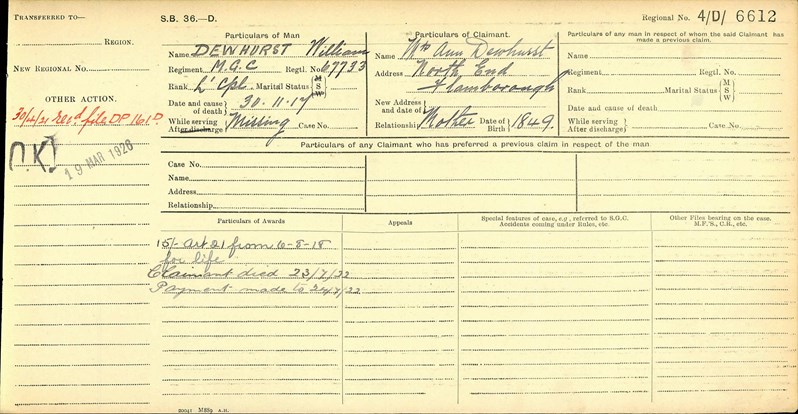 TRANSFERRED TO—
REGION.
NEW REGIONAL No.
OTHER ACTION.
30/4/21 Rec'd file DP 161 D.
19 MAR 1926
S.B. 36.—D.
Regional No. 4/D/ 6612
Particulars of Man
Name DEWHURST William
Regiment M.G.C Regtl. No. 67733
Rank L' Cpl. Marital Status M S W
Date and cause of death 30.11.17
While serving
After discharge Missing Case No.
Particulars of Claimant.
Name Mrs Ann Dewhurst
Address North End
Flamborough
New Address and date of
Relationship Mother Date of Birth 1849.
Particulars of any man in respect of whom the said Claimant has made a previous claim.
Name
Regiment Regtl. No.
Rank Marital Status M S W
Date and cause of death
While serving
After discharge Case No.
Particulars of any Claimant who has preferred a previous claim in respect of the man
Case No.
Name
Address
Relationship
Particulars of Awards
Appeals
Special features of case, e.g., referred to S.G.C. Accidents coming under Rules, etc.
Other Files bearing on the case. M.F.'S., C.R., etc.
15/- Art 21 from 6-8-18
for life
Claimant died 23/7/32
Payment made to 24/7/32